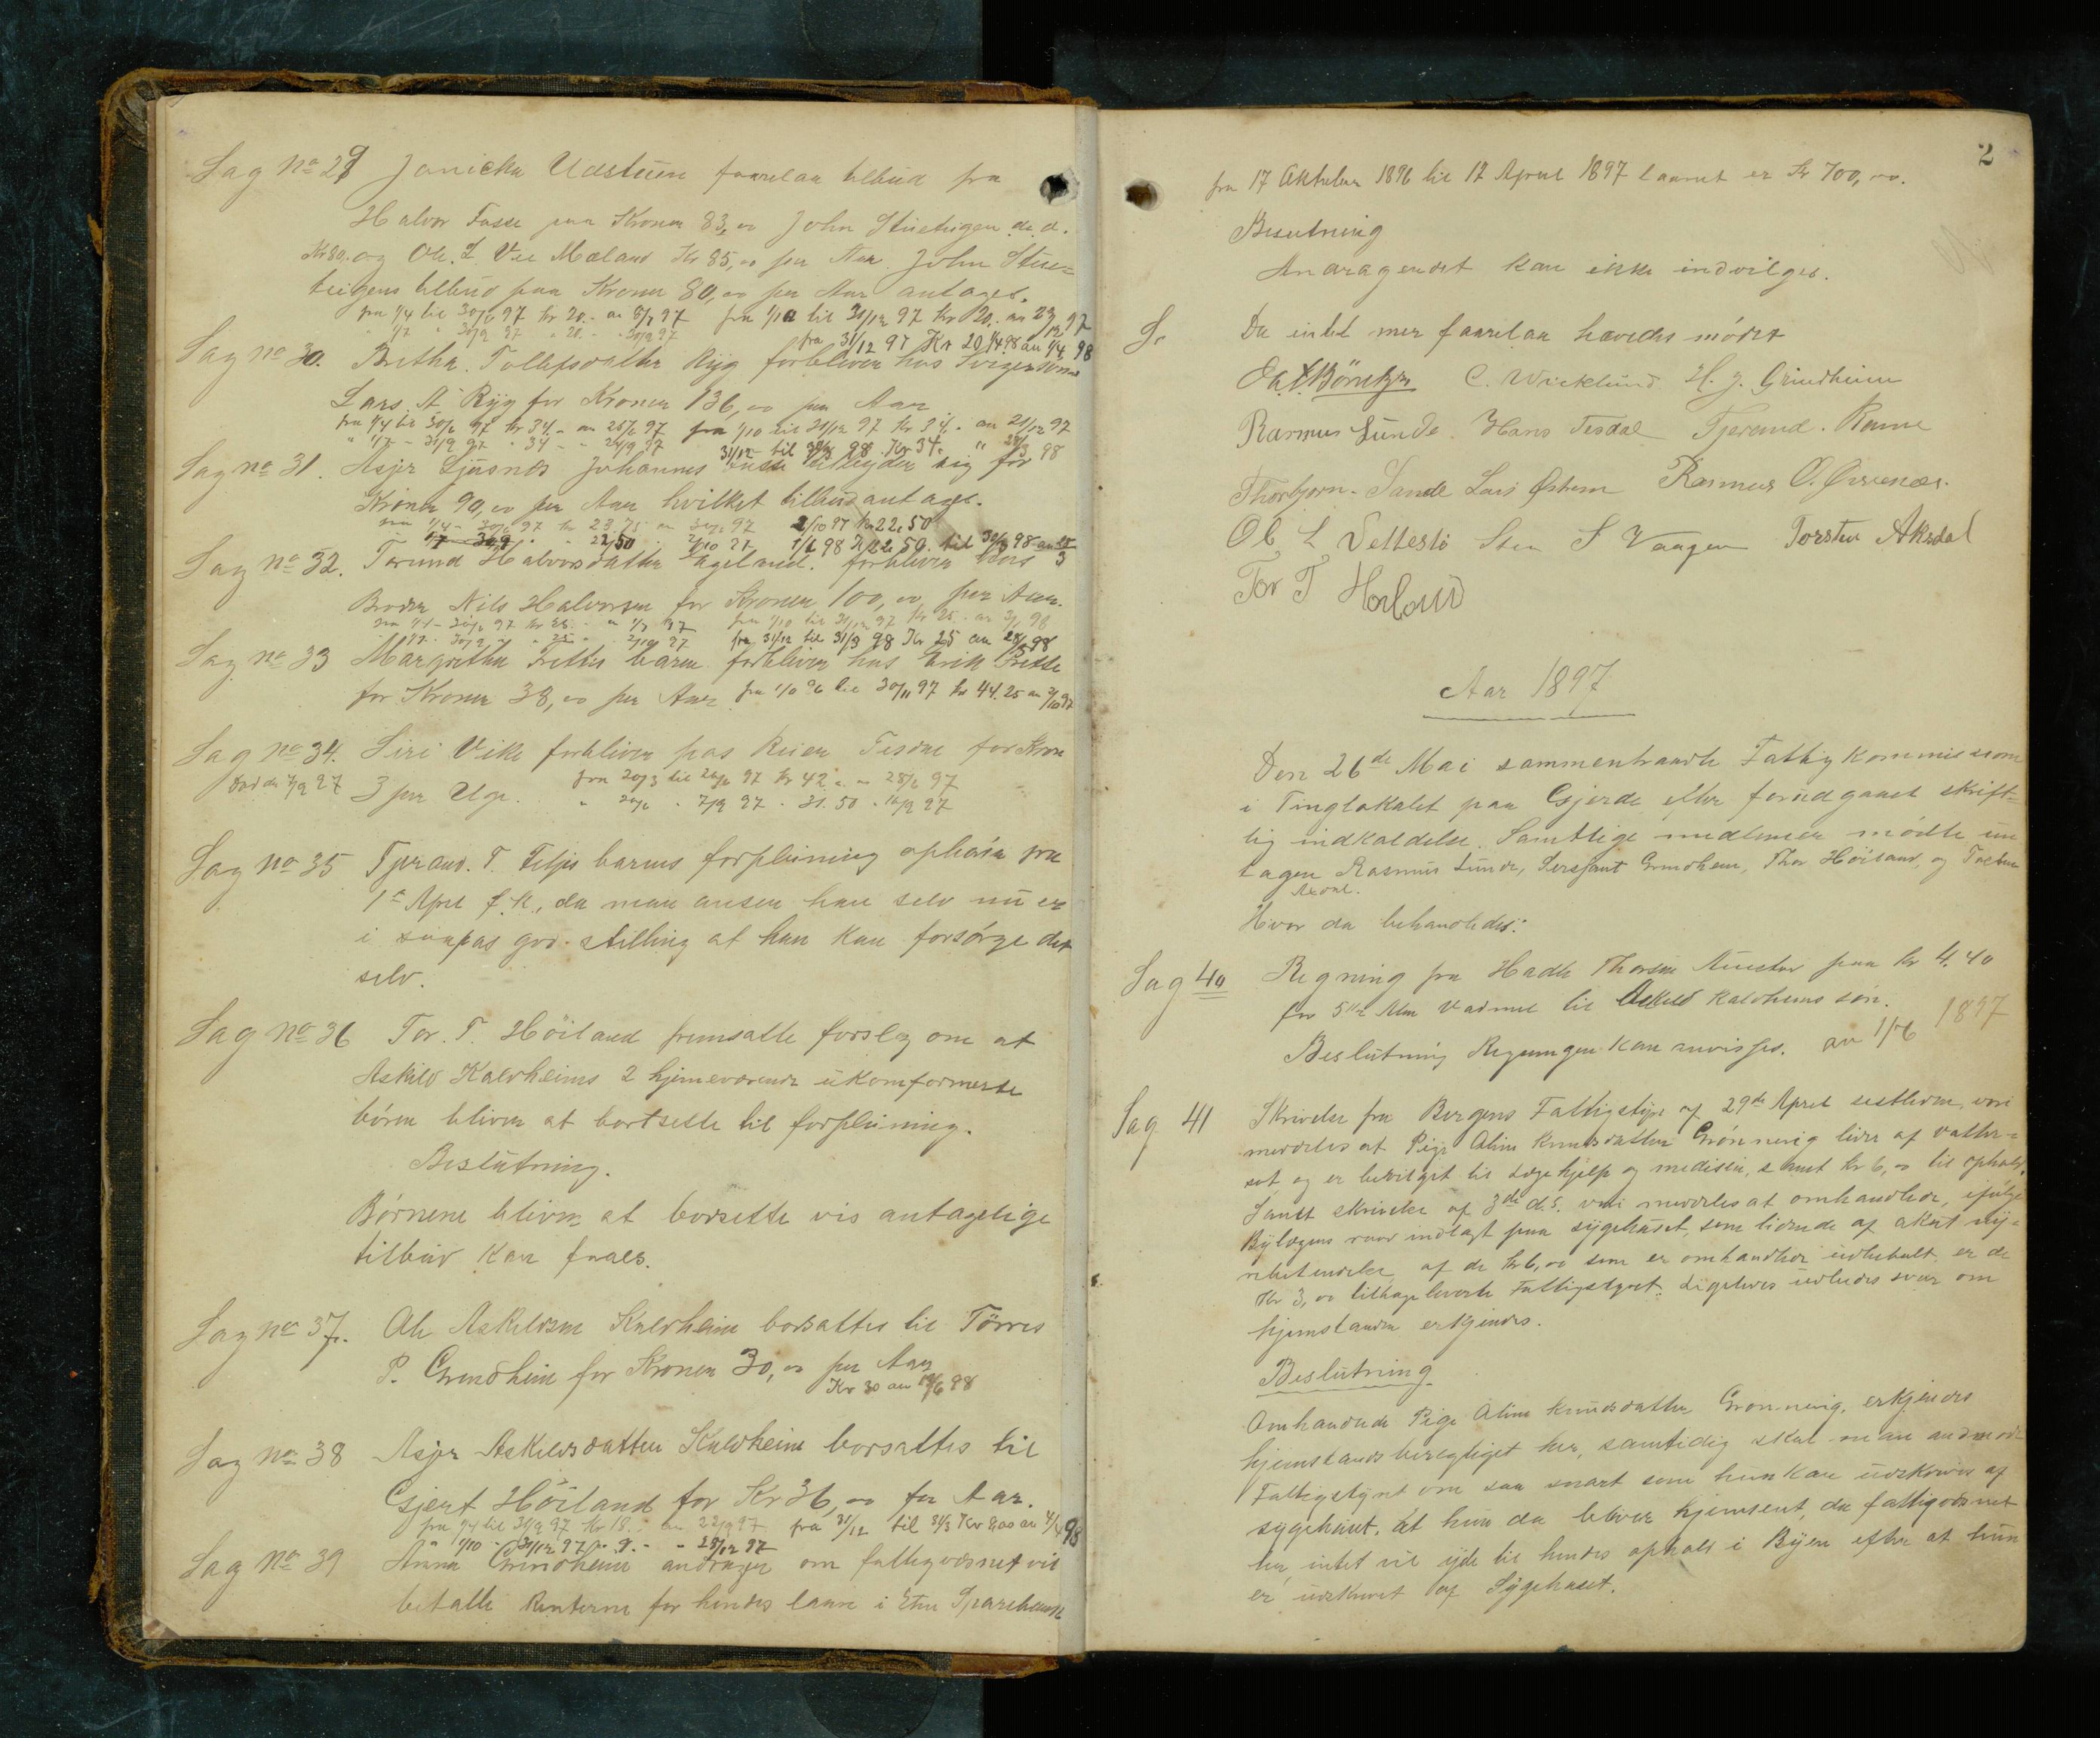 Sag No 29 Janicka Udstuen foorelaa tilbud fra
Halvor Fosse paa Kroner 83,00 John Stueteigen d.d.
Kr 80. og Ole. L. Vee Mæland Kr 85,00 per Aar John Stue=
teigens tilbud paa Kroner 80,00 per Aar antages.
fra 1/4 til 30/6 97 Kr 20.- an 8/7 97 fra 1/10 til 31/12 97 Kr 20.- an 23/12 97
" 1/7 " 30/9 97 " 20.- " 30/9 97
fra 31/12 97 Kr 20 1/4 98 an 1/4 98
Sag no 30. Bretha. Tollefsdatter Ryg forbliver hos Svigersønn
Lars A Ryg for Kroner 136,00 per Aar
fra 1/4 til 30/6 97 Kr 34.- an 25/6 97 fra 1/10 til 31/12 97 Kr 34.- an 21/12 97
" 1/7 - 31/9 97 " 34 - - 24/9 97
31/12 til 31/3 98 Kr 34. " 28/3 98
Sag no 31. Asjer Ljusnes Johannes tilbyder sig for
Kroner 90,00 per Aar hvilket tilbud antages.
fra 1/4 - 30/6 97 kr 23.75 an 30/6 97 2/10 97 Kr 22,50
1/7 30/9 " " 22/50 - 2/10 97. 1/1 98 Kr 22,50 til 31/3 98 an 25/3
Sag no 32. Torund Halvorsdatter Ageland. forbliver hos
Broder Nils Halvorsen for Kroner 100,00 per Aar.
fra 1/4 - 30/6 97 Kr 25.- an 1/7 97 fra 1/10 til 31/12 97 Kr 25.- an 3/1 98
1/7 - 30/9 " " 25 - - 2/10 97 fra 31/12 til 31/3 98 Kr 25 an 28/3 98
Sag no 33 Margrethe Frettes barn forbliver hos Erik Frette
for Kroner 38,00 per Aar fra 1/10 96 til 30/11 97 kr 44.25 an 2/10 97
Sag no 34. Siri Vike forbliver hos Reier Tesdal for Kron
død den 7/9 97 3 per Uge. fra 20/3 til 26/6 97 Kr 42.- an 28/6 97
" 26/6 - 7/9 97 - 31.50 - 16/9 97
Sag no 35 Tjerand. T. Teljes barns forpleining ophører fra
1ste April f.k., da man anser han selv nu er
i saapas god. stilling at han kan forsørge det
selv.
Sag no 36 Tor. T. Höiland fremsatte forslag om at
Askild Kaldheims 2 hjemeværende ukonformerte
børen bliver at bortsette til forpleining.
Beslutning.
Børnene bliver at bortsette vis antagelige
tilbud kan faaes.
Sag no 37. Ole Askildsen Kaldheim borsattes til Törres
P. Grindheim for Kroner 30,00 per Aar
Kr 30 an 19/6 98
Sag no 38 Asjer Askildsdatter Kaldheim borsattes til
Gjert Höiland for Kr 36,00 per Aar.
fra 1/4 til 31/9 97 Kr 18.- an 22/9 97 fra 31/12 til 31/3 Kr 9,00 an 4/4 98
" 1/10 - 31/12 97 " 9.- - " 28/12 97
Sag No 39 Anna Grindheim andrager om fattigvæsnet vil
betalle Renterne for hendes laan i Etne Sparebank
2
fra 17 Oktober 1896 til 17 April 1897 laanet er Kr 700,00.
Beslutning
Andragendet kan ikke indvilges.
S. Da intet mer foorelaa hævedes mödet
C. Wicklund H. J. Grindheim
Rasmus Lunde. Hans Tesdal Tjerand. Rame
Thorbjorn. Sande Lars Østrem Rasmus O. Ørsenæs.
Ole L Vettestö Sten S Vaagen Torsten Aksdal
Tor T Høiland
Aar 1897
Den 26de Mai sammentraadte Fattigkommissionen
i Tinglokalet paa Gjerde efter forudgaaet skrift=
lig indkaldelse. Samtlige medlemer mödte und
tagen Rasmus Lunde, Sersjant Grindheim, Thor Höiland, og Torsten
Axdal.
Hvor da behandledes:
Sag 40 Regning fra Hadle Thorsen Austre paa Kr 4.40
for 5 1/2 Alen Vadmel til Askild Kaldheims søn.
Beslutning Regningen kan anvisses. an 1/6 1897
Sag 41 Skrivelse fra Bergens Fattigstyre af 29de April sistleden, vori
meddeles at Pige Aline Knudsdatter Grönnevig lider af vatter=
sot og er bevilget til Lægehjelp og medisin, samt Kr 6,00 til ophold,
Samt skrivelse af 3de d.s. vori meddeles at omhandlede, ifølge
Bylægens raad indlagt paa sygehuset, som lidende af akut ny=
rebetendelse af de Kr 6,00 som er omhandlede udbetalt er de
Kr 3,00 tilbageleverte Fattigstyret. Ligeledes udbedes svar om
hjemstanden erkjendes.
Beslutning
Omhandlede Pige Aline Knudsdatter Grönnevig, erkjendes
hjemstandsberegtiget her, samtidig skal man anmode
Fattigstyret om saa snart som hun kan udskrives af
sygehuset, at hun da bliver hjemsent, da fattigvæsnet
her intet vil yde til hendes ophold i Byen efter at hun
er udskrevet af Sygehuset.